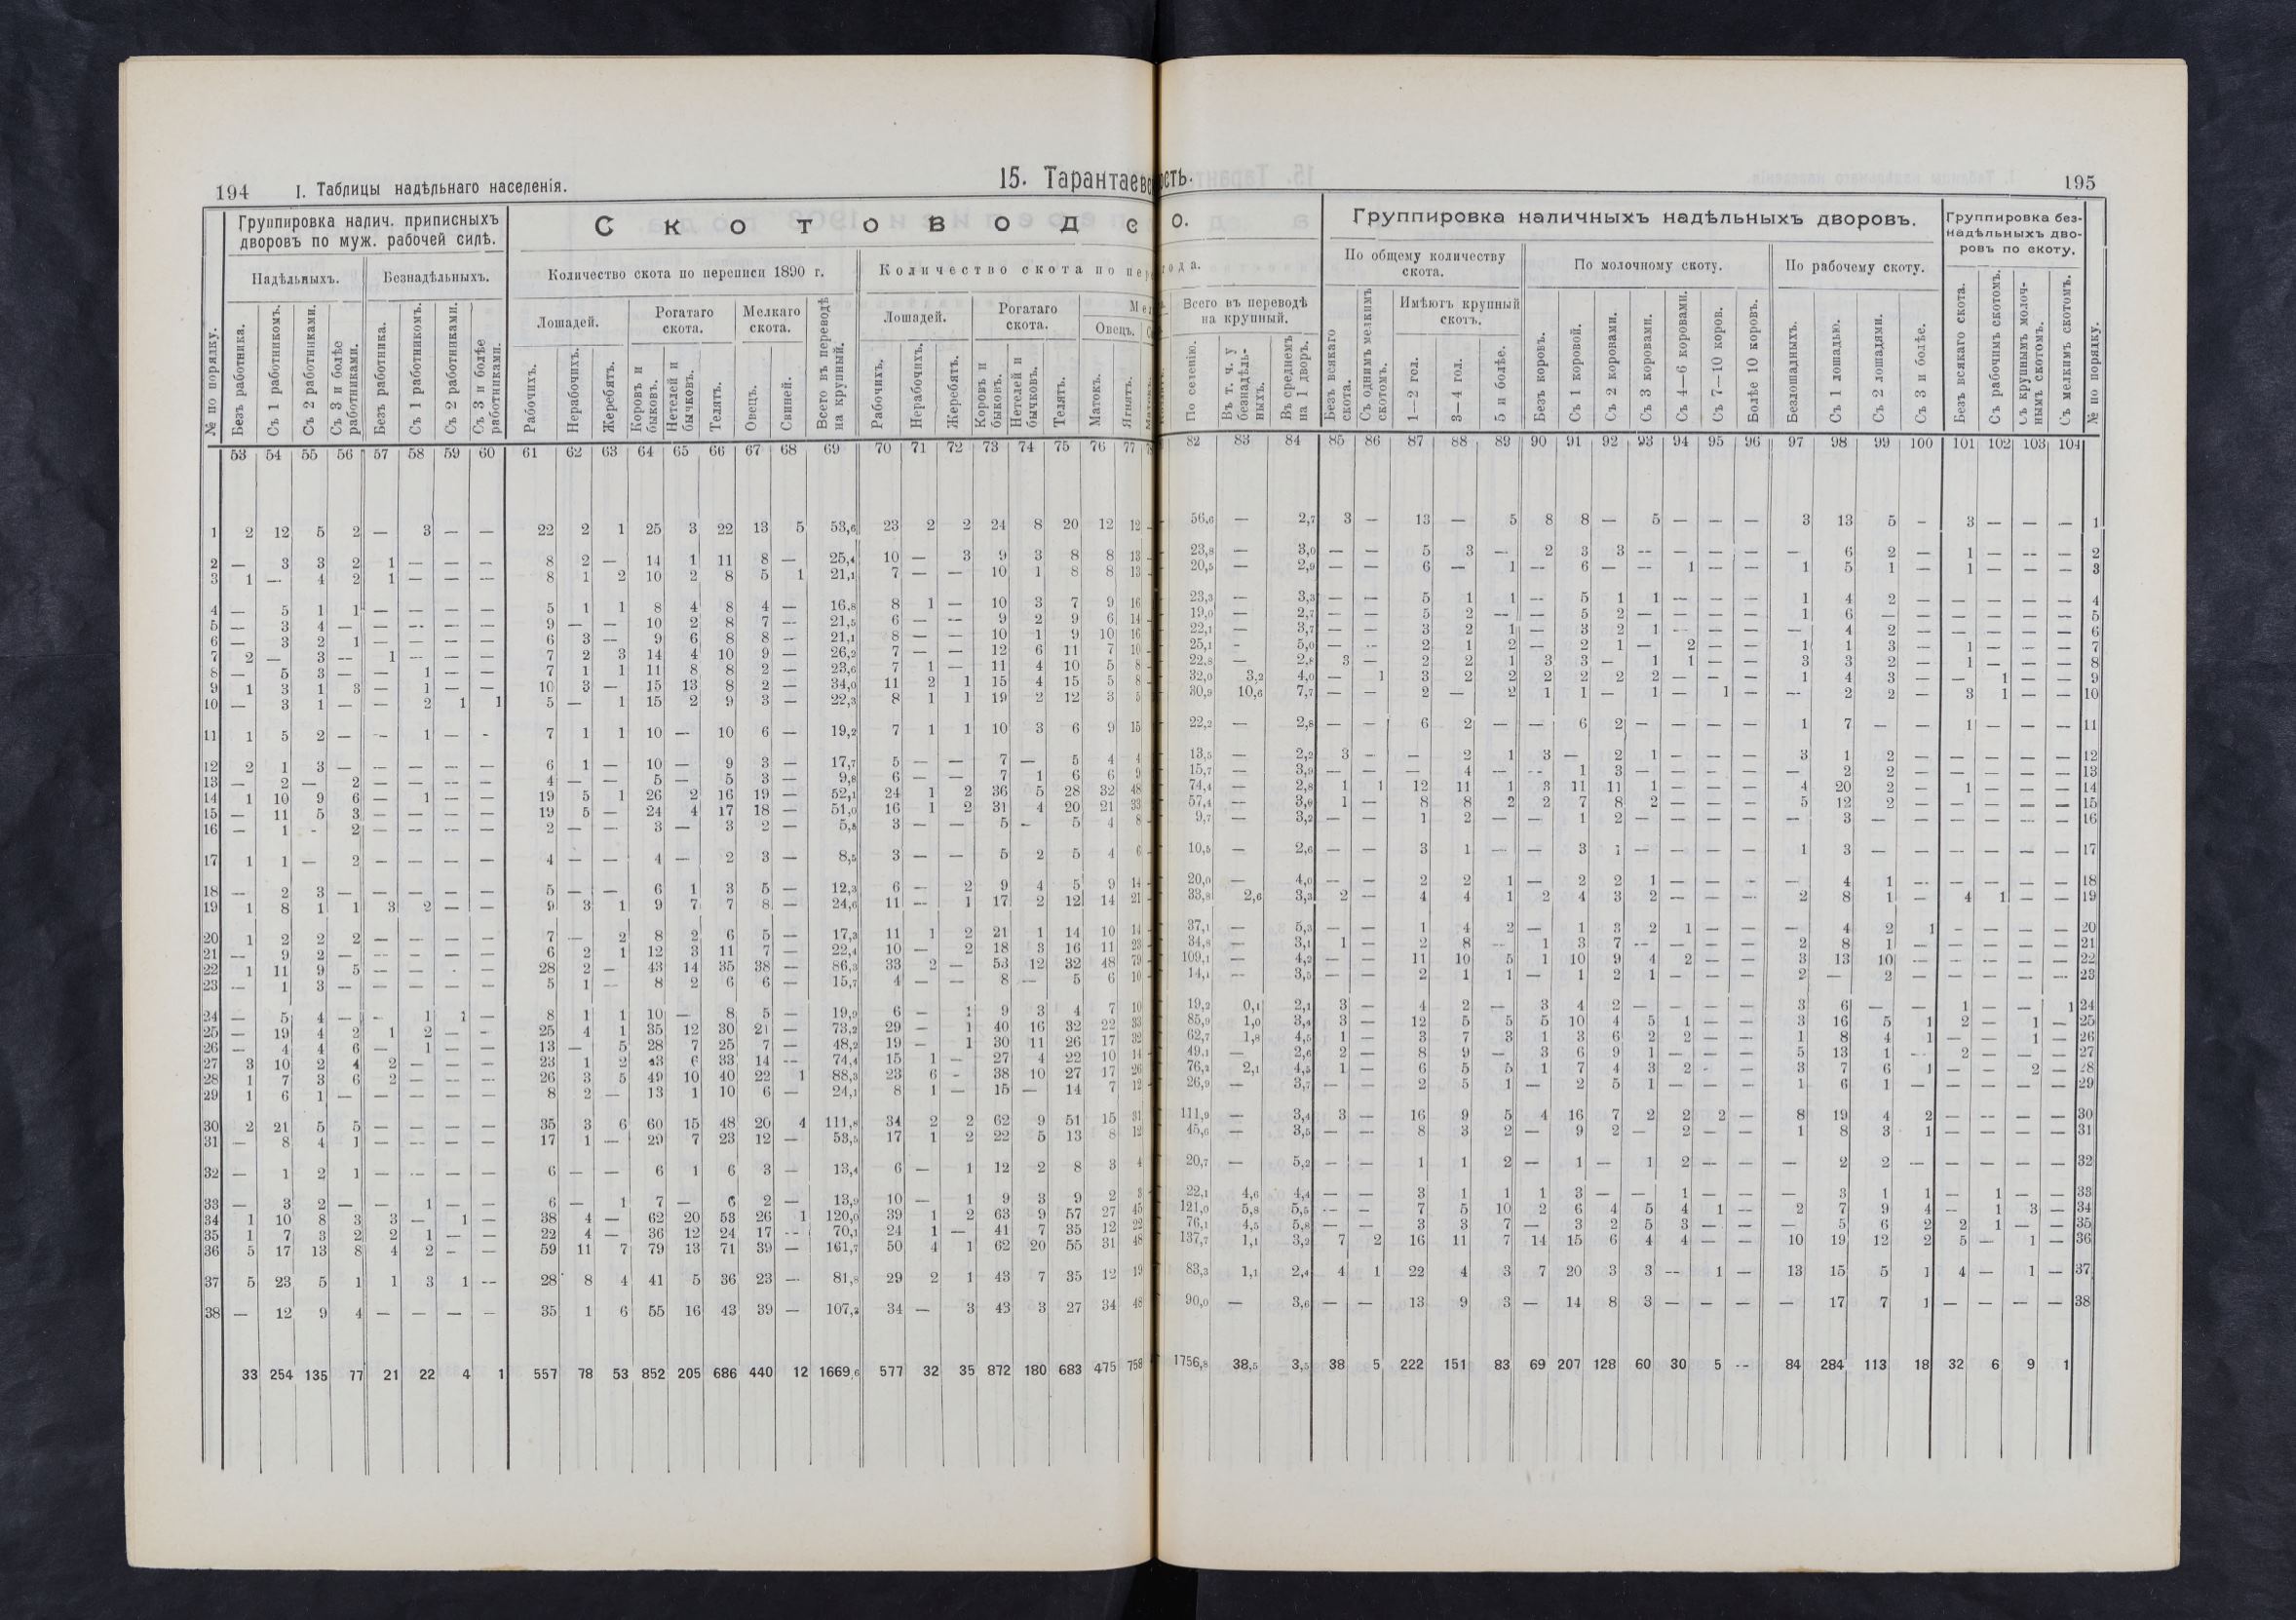 194 I. Таблицы надѣльнаго населенія.
15. Тарантаевс
ость.
195
Группировка налич. приписныхъ дворовъ по муж. рабочей силѣ.
С К О Т О В О Д С
О.
Группировка наличныхъ надѣльныхъ дворовъ.
Группировка без-надѣльныхъ дво-ровъ по скоту.
Надѣльныхъ. Безнадѣльныхъ.
Количество скота по переписи 1890 г.
Количество скота по пер
года.
По общему количеству скота.
По молочному скоту.
По рабочему скоту.
Лошадей. Рогатаго скота. Мелкаго скота.
Лошадей. Рогатаго скота. Овецъ.
Всего въ переводѣ на крупный.
Имѣютъ крупный скотъ.
№ по порядку.
Безъ работника.
Съ 1 работникомъ.
Съ 2 работниками.
Съ 3 и болѣе работниками.
Безъ работника.
Съ 1 работникомъ.
Съ 2 работниками.
Съ 3 и болѣе работниками.
Рабочихъ.
Нерабочихъ.
Жеребятъ.
Коровъ и быковъ.
Нетелей и бычковъ.
Телятъ.
Овецъ.
Свиней.
Всего въ переводѣ на крупный.
Рабочихъ.
Нерабочихъ.
Жеребятъ.
Коровъ и быковъ.
Нетелей и бычковъ.
Телятъ.
Матокъ.
Ягнятъ.
По селенію.
Въ т. ч. у безнадѣль-ныхъ.
Въ среднемъ на 1 дворъ.
Безъ всякаго скота.
Съ однимъ мелкимъ скотомъ.
1—2 гол.
3—4 гол.
5 и болѣе.
Безъ коровъ.
Съ 1 коровой.
Съ 2 коровами.
Съ 3 коровами.
Съ 4—6 коровами.
Съ 7—10 коров.
Болѣе 10 коровъ.
Безлошадныхъ.
Съ 1 лошадью.
Съ 2 лошадями.
Съ 3 и болѣе.
Безъ всякаго скота.
Съ рабочимъ скотомъ.
Съ крупнымъ молоч-нымъ скотомъ.
Съ мелкимъ скотомъ.
№ по порядку.
53 54 55 56 57 58 59 60 61 62 63 64 65 66 67 68 69 70 71 72 73 74 75 76 77
82 83 84 85 86 87 88 89 90 91 92 93 94 95 96 97 98 99 100 101 102 103 104
1 2 12 5 2 — 3 — — 22 2 1 25 3 22 13 5 53,6 23 2 2 24 8 20 12 12
56,6 — 2,7 3 — 13 — 5 8 8 — 5 — — — 3 13 5 - 3 — — — 1
2 — 3 3 2 1 — — — 8 2 — 14 1 11 8 — 25,4 10 — 3 9 3 8 8 13
23,8 — 3,0 — — 5 3 — 2 3 3 — — — — — 6 2 — 1 — — — 2
3 1 — 4 2 1 — — — 8 1 2 10 2 8 5 1 21,1 7 — — 10 1 8 8 13
20,5 — 2,9 — — 6 — 1 — 6 — — 1 — — 1 5 1 — 1 — — — 3
4 — 5 1 1 — — — — 5 1 1 8 4 8 4 — 16,8 8 1 — 10 3 7 9 16
23,3 — 3,3 — — 5 1 1 — 5 1 1 — — — 1 4 2 — — — — — 4
5 — 3 4 — — — — — 9 — — 10 2 8 7 — 21,5 6 — — 9 2 9 6 14
19,0 — 2,7 — — 5 2 — — 5 2 — — — — 1 6 — — — — — — 5
6 — 3 2 1 — — — — 6 3 — 9 6 8 8 — 21,1 8 — — 10 1 9 10 16
22,1 — 3,7 — — 3 2 1 — 3 2 1 — — — — 4 2 — — — — — 6
7 2 — 3 — 1 — — — 7 2 3 14 4 10 9 — 26,2 7 — — 12 6 11 7 10
25,1 - 5,0 — — 2 1 2 — 2 1 — 2 — — 1 1 3 — 1 — — — 7
8 — 5 3 — — 1 — — 7 1 1 11 8 8 2 — 23,6 7 1 — 11 4 10 5 8
22,8 — 2,8 3 — 2 2 1 3 3 — 1 1 — — 3 3 2 — 1 — — — 8
9 1 3 1 3 — 1 — — 10 3 — 15 13 8 2 — 34,0 11 2 1 15 4 15 5 8
32,0 3,2 4,0 — 1 3 2 2 2 2 2 2 — — — 1 4 3 — — 1 — — 9
10 — 3 1 — — 2 1 1 5 — 1 15 2 9 3 — 22,3 8 1 1 19 2 12 3 5
30,9 10,6 7,7 — — 2 — 2 1 1 — 1 — 1 — — 2 2 — 3 1 — — 10
11 1 5 2 — — 1 — - 7 1 1 10 — 10 6 — 19,2 7 1 1 10 3 6 9 15
22,2 — 2,8 — — 6 2 — — 6 2 — — — — 1 7 — — 1 — — — 11
12 2 1 3 — — — — — 6 1 — 10 — 9 3 — 17,7 5 — — 7 — 5 4 4
13,5 — 2,2 3 — — 2 1 3 — 2 1 — — — 3 1 2 — — — — — 12
13 — 2 — 2 — — — — 4 — — 5 — 5 3 — 9,8 6 — — 7 1 6 6 9
15,7 — 3,9 — — — 4 — — 1 3 — — — — — 2 2 — — — — — 13
14 1 10 9 6 — 1 — — 19 5 1 26 2 16 19 — 52,1 24 1 2 36 5 28 32 48
74,4 — 2,8 1 1 12 11 1 3 11 11 1 — — — 4 20 2 — 1 — — — 14
15 — 11 5 3 — — — — 19 5 — 24 4 17 18 — 51,0 16 1 2 31 4 20 21 33
57,4 — 3,0 1 — 8 8 2 2 7 8 2 — — — 5 12 2 — — — — — 15
16 — 1 - 2 — — — — 2 — — 3 — 3 2 — 5,8 3 — — 5 — 5 4 8
9,7 — 3,2 — — 1 2 — — 1 2 — — — — — 3 — — — — — — 16
17 1 1 — 2 — — — — 4 — — 4 — 2 3 — 8,5 3 — — 5 2 5 4 6
10,5 — 2,6 — — 3 1 — — 3 1 — — — — 1 3 — — — — — — 17
18 — 2 3 — — — — — 5 — — 6 1 3 5 — 12,3 6 — 2 9 4 5 9 14
20,0 — 4,0 — — 2 2 1 — 2 2 1 — — - — 4 1 — — — — — 18
19 1 8 1 1 3 2 — — 9 3 1 9 7 7 8 — 24,6 11 — 1 17 2 12 14 21
33,8 2,6 3,3 2 — 4 4 1 2 4 3 2 — — — 2 8 1 — 4 1 — — 19
20 1 2 2 2 — — — — 7 — 2 8 2 6 5 — 17,3 11 1 2 21 1 14 10 14
37,1 — 5,3 — — 1 4 2 — 1 3 2 1 — — — 4 2 1 — — — — 20
21 — 9 2 — — — — — 6 2 1 12 3 11 7 — 22,4 10 — 2 18 3 16 11 23
34,8 — 3,1 1 — 2 8 — 1 3 7 — — — — 2 8 1 — — — — — 21
22 1 11 9 5 — — - — 28 2 — 43 14 35 38 — 86,3 33 2 — 53 12 32 48 79
109,1 — 4,2 — — 11 10 5 1 10 9 4 2 — — 3 13 10 — — — — — 22
23 — 1 3 — — — — — 5 1 — 8 2 6 6 — 15,7 4 — — 8 — 5 6 10
14,1 — 3,5 — — 2 1 1 — 1 2 1 — — — 2 — 2 — — — — — 23
24 — 5 4 — — 1 1 — 8 1 1 10 — 8 5 — 19,9 6 — 1 9 3 4 7 10
19,2 0,1 2,1 3 — 4 2 — 3 4 2 — — — — 3 6 — — 1 — — 1 24
25 — 19 4 2 1 2 — - 25 4 1 35 12 30 21 — 73,2 29 — 1 40 16 32 22 33
85,9 1,0 3,4 3 — 12 5 5 5 10 4 5 1 — — 3 16 5 1 2 — 1 — 25
26 — 4 4 6 — 1 — — 13 — 5 28 7 25 7 — 48,2 19 — 1 30 11 26 17 32
62,7 1,8 4,5 1 — 3 7 3 1 3 6 2 2 — — 1 8 4 1 — — 1 — 26
27 3 10 2 4 2 — — — 23 1 2 43 6 33 14 — 74,4 15 1 — 27 4 22 10 14
49,1 — 2,6 2 — 8 9 — 3 6 9 1 — — — 5 13 1 — 2 — — — 27
28 1 7 3 6 2 — — — 26 3 5 49 10 40 22 1 88,3 23 6 - 38 10 27 17 26
76,3 2,1 4,5 1 — 6 5 5 1 7 4 3 2 - — 3 7 6 1 — — 2 — 28
29 1 6 1 — — — — — 8 2 — 13 1 10 6 — 24,1 8 1 — 15 — 14 7 12
26,9 — 3,7 — — 2 5 1 — 2 5 1 — — — 1 6 1 — — — — — 29
30 2 21 5 5 — — — — 35 3 6 60 15 48 20 4 111,8 34 2 2 62 9 51 15 31
111,9 — 3,4 3 — 16 9 5 4 16 7 2 2 2 — 8 19 4 2 — — — — 30
31 — 8 4 1 — — — — 17 1 — 29 7 23 12 — 53,5 17 1 2 22 5 13 8 12
45,6 — 3,5 — — 8 3 2 — 9 2 — 2 — — 1 8 3 1 — — — — 31
32 — 1 2 1 — — — — 6 — — 6 1 6 3 — 13,4 6 — 1 12 2 8 3 4
20,7 — 5,2 — — 1 1 2 — 1 — 1 2 — — — 2 2 — — — — — 32
33 — 3 2 — — 1 — — 6 — 1 7 — 6 2 — 13,9 10 — 1 9 3 9 2 3
22,1 4,6 4,4 — — 3 1 1 1 3 — — 1 — — — 3 1 1 — 1 — — 33
34 1 10 8 3 3 — 1 — 38 4 — 62 20 53 26 1 120,0 39 1 2 63 9 57 27 45
121,0 5,8 5,5 — — 7 5 10 2 6 4 5 4 1 — 2 7 9 4 — 1 3 — 34
35 1 7 3 2 2 1 — — 22 4 — 36 12 24 17 — 70,1 24 1 — 41 7 35 12 22
76,1 4,5 5,8 — — 3 3 7 — 3 2 5 3 — — — 5 6 2 2 1 — — 35
36 5 17 13 8 4 2 — — 59 11 7 79 13 71 39 — 161,7 50 4 1 62 20 55 31 48
137,7 1,1 3,2 7 2 16 11 7 14 15 6 4 4 — — 10 19 12 2 5 — 1 — 36
37 5 23 5 1 1 3 1 — 28 8 4 41 5 36 23 — 81,8 29 2 1 43 7 35 12 19
83,3 1,1 2,4 4 1 22 4 3 7 20 3 3 — 1 — 13 15 5 1 4 — 1 — 37
38 — 12 9 4 — — — — 35 1 6 55 16 43 39 — 107,3 34 — 3 43 3 27 34 48
90,0 — 3,6 — — 13 9 3 — 14 8 3 — — — — 17 7 1 — — — — 38
33 254 135 77 21 22 4 1 557 78 53 852 205 686 440 12 1669,6 577 32 35 872 180 683 475 758
1756,8 38,5 3,5 38 5 222 151 83 69 207 128 60 30 5 — 84 284 113 18 32 6 9 1